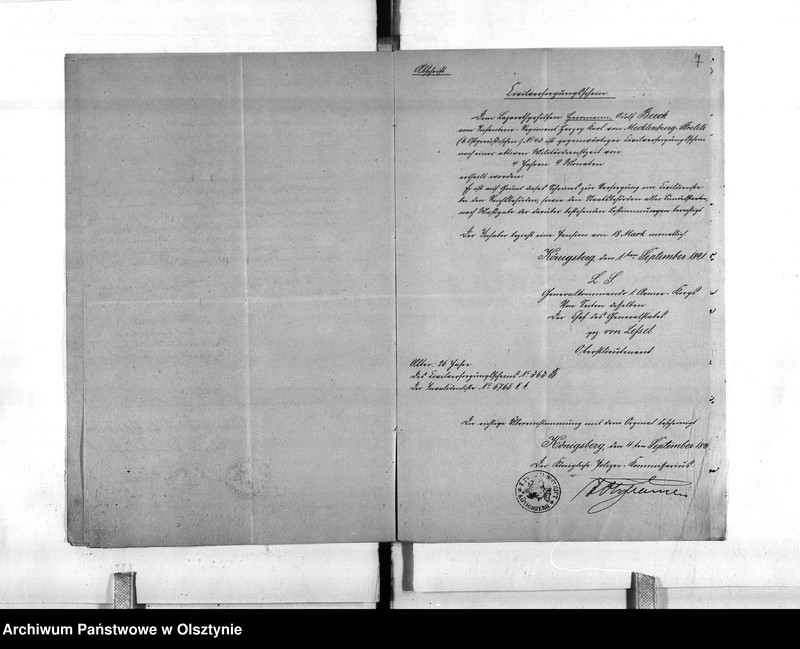 7
Abschrift
Civilversorgungsschein
Dem Lazarethgehilfen Herrmann Adolf Beeck
vom Infanterie Regiment Herzog Karl von Mecklenburg-Strelitz
(6. Ostpreußischen) No 43 ist gegenwärtiger Civilversorgungsschein
nach einer aktiven Militärdienstzeit von
4 Jahren 9 Monaten
ertheilt worden
Er ist auf Grund dieses Scheines zur Versorgung im Civildienste
bei den Reichsbehörden, sowie den Staatsbehörden aller Bundesstaaten,
nach Maßgabe der darüber bestehenden Bestimmungen berechtigt
Der Inhaber bezieht eine Pension von 18 Mark monatlich
Königsberg, den 1ten September 1891
L. S.
Generalkommando 1 Armee-Korps
Von Seiten desselben
Der Chef des Generalstabes
gez von Leßel
Oberstlieutenant
Alter: 26 Jahre
des Civilversorgungsscheins No 363
der Invalidenliste No 6765
Die richtige Übereinstimmung mit dem Original bescheinigt
Königsberg, den 4ten September 1891
Der Königliche Polizei-Kommissarius
Archiwum Państwowe w Olsztynie